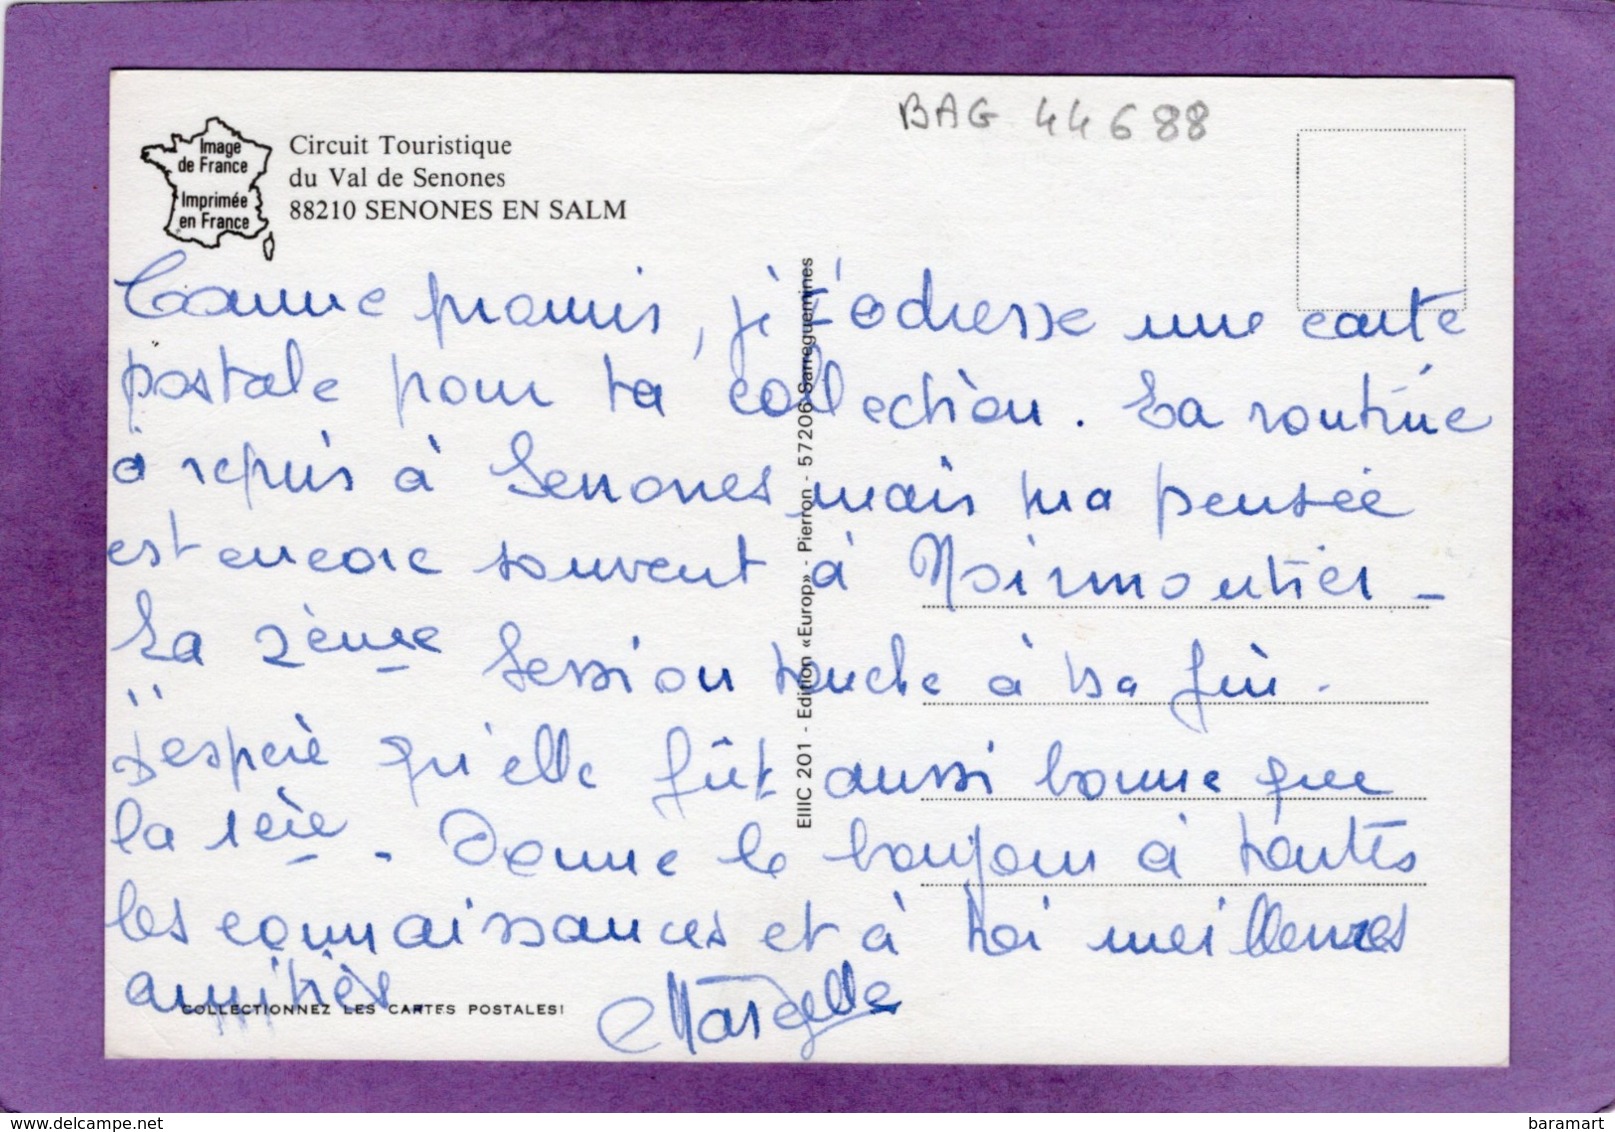 BAG 44688
Image
de France
Imprimée
en France
Circuit Touristique
du Val de Senones
88210 SENONES EN SALM
Comme promis, je t'adresse une carte
postale pour ta collection. La routine
a repris à Senones mais ma pensée
est encore souvent à Noirmoutier -
La 2ème Session touche à sa fin.
J'espère qu'elle fût aussi bonne que
la 1ère. Donne le bonjour à toutes
les connaissances et à toi meilleures
amitiés.
Marcelle
COLLECTIONNEZ LES CARTES POSTALES!
EIIIC 201 - Edition «Europ» - Pierron - 57206 Sarreguemines
baramart